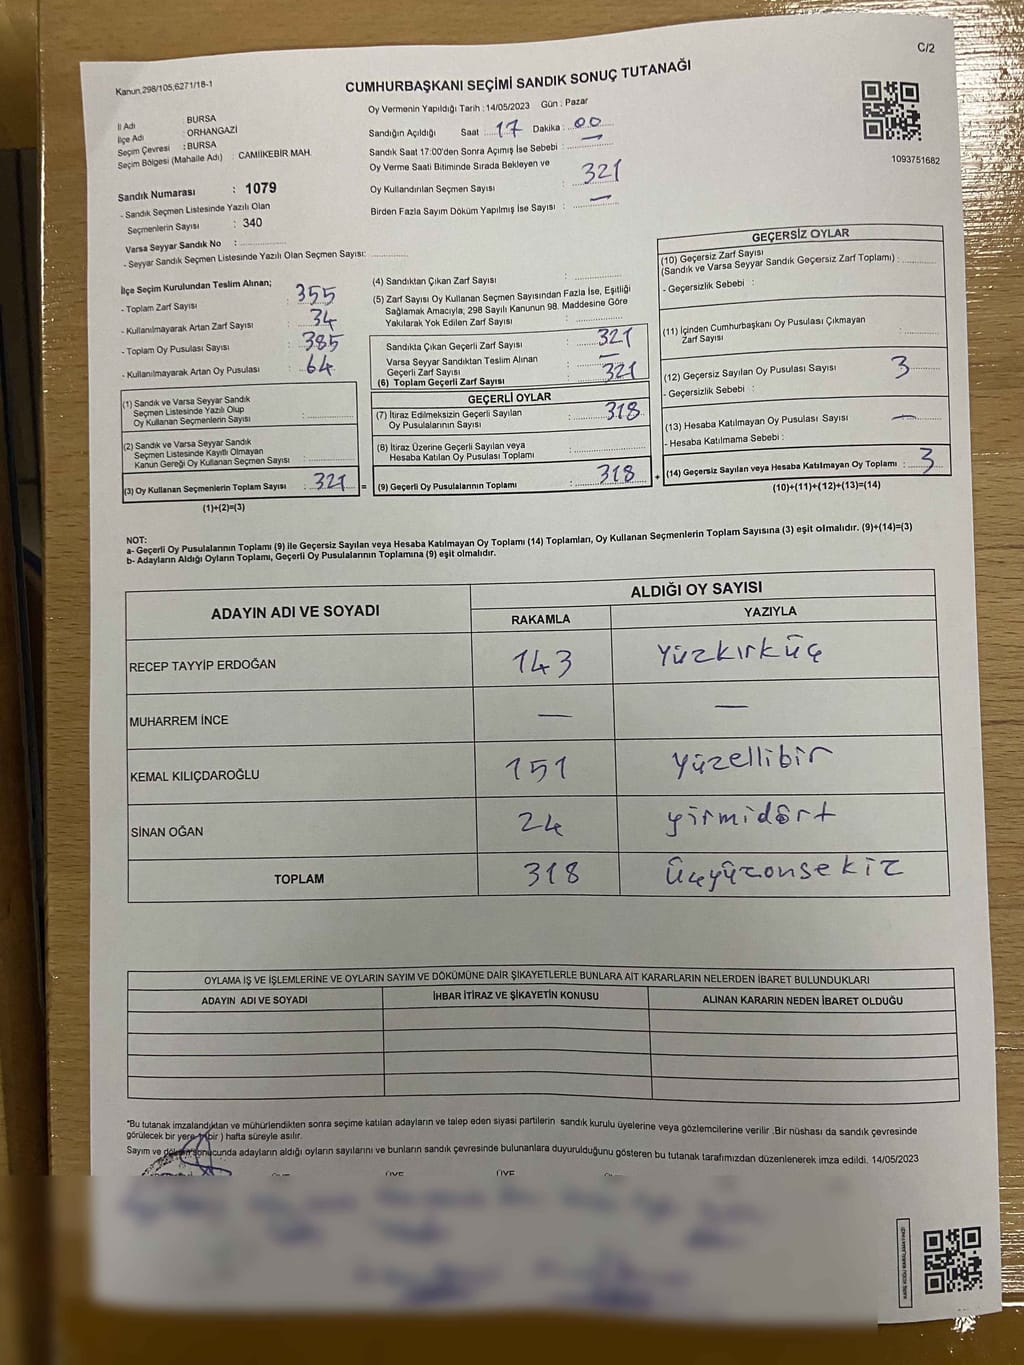 C/2
Kanun,298/105,6271/18-1
CUMHURBAŞKANI SEÇİMİ SANDIK SONUÇ TUTANAĞI
Oy Vermenin Yapıldığı Tarih : 14/05/2023 Gün : Pazar
İl Adı : BURSA
İlçe Adı : ORHANGAZİ
Seçim Çevresi : BURSA
Seçim Bölgesi (Mahalle Adı) : CAMİİKEBİR MAH.
Sandık Numarası : 1079
- Sandık Seçmen Listesinde Yazılı Olan
Seçmenlerin Sayısı : 340
Varsa Seyyar Sandık No :
- Seyyar Sandık Seçmen Listesinde Yazılı Olan Seçmen Sayısı:
Sandığın Açıldığı Saat 17 Dakika : 00
Sandık Saat 17:00'den Sonra Açımış İse Sebebi : —
Oy Verme Saati Bitiminde Sırada Bekleyen ve
Oy Kullandırılan Seçmen Sayısı : 321
Birden Fazla Sayım Döküm Yapılmış İse Sayısı : —
1093751682
İlçe Seçim Kurulundan Teslim Alınan;
- Toplam Zarf Sayısı : 355
- Kullanılmayarak Artan Zarf Sayısı : 34
- Toplam Oy Pusulası Sayısı : 385
- Kullanılmayarak Artan Oy Pusulası : 64
(1) Sandık ve Varsa Seyyar Sandık
Seçmen Listesinde Yazılı Olup
Oy Kullanan Seçmenlerin Sayısı :
(2) Sandık ve Varsa Seyyar Sandık
Seçmen Listesinde Kayıtlı Olmayan
Kanun Gereği Oy Kullanan Seçmen Sayısı :
(3) Oy Kullanan Seçmenlerin Toplam Sayısı : 321 =
(1)+(2)=(3)
(4) Sandıktan Çıkan Zarf Sayısı :
(5) Zarf Sayısı Oy Kullanan Seçmen Sayısından Fazla İse, Eşitliği
Sağlamak Amacıyla; 298 Sayılı Kanunun 98. Maddesine Göre
Yakılarak Yok Edilen Zarf Sayısı :
Sandıkta Çıkan Geçerli Zarf Sayısı : 321
Varsa Seyyar Sandıktan Teslim Alınan
Geçerli Zarf Sayısı : —
(6) Toplam Geçerli Zarf Sayısı : 321
GEÇERLİ OYLAR
(7) İtiraz Edilmeksizin Geçerli Sayılan
Oy Pusulalarının Sayısı : 318
(8) İtiraz Üzerine Geçerli Sayılan veya
Hesaba Katılan Oy Pusulası Toplamı :
(9) Geçerli Oy Pusulalarının Toplamı : 318 +
GEÇERSİZ OYLAR
(10) Geçersiz Zarf Sayısı
(Sandık ve Varsa Seyyar Sandık Geçersiz Zarf Toplamı) :
- Geçersizlik Sebebi :
(11) İçinden Cumhurbaşkanı Oy Pusulası Çıkmayan
Zarf Sayısı :
(12) Geçersiz Sayılan Oy Pusulası Sayısı : 3
- Geçersizlik Sebebi :
(13) Hesaba Katılmayan Oy Pusulası Sayısı : —
- Hesaba Katılmama Sebebi :
(14) Geçersiz Sayılan veya Hesaba Katılmayan Oy Toplamı : 3
(10)+(11)+(12)+(13)=(14)
NOT:
a- Geçerli Oy Pusulalarının Toplamı (9) ile Geçersiz Sayılan veya Hesaba Katılmayan Oy Toplamı (14) Toplamları, Oy Kullanan Seçmenlerin Toplam Sayısına (3) eşit olmalıdır. (9)+(14)=(3)
b- Adayların Aldığı Oyların Toplamı, Geçerli Oy Pusulalarının Toplamına (9) eşit olmalıdır.
ADAYIN ADI VE SOYADI ALDIĞI OY SAYISI
RAKAMLA YAZIYLA
RECEP TAYYİP ERDOĞAN 143 Yüzkırküç
MUHARREM İNCE — —
KEMAL KILIÇDAROĞLU 151 Yüzellibir
SİNAN OĞAN 24 yirmidört
TOPLAM 318 Üçyüzonsekiz
OYLAMA İŞ VE İŞLEMLERİNE VE OYLARIN SAYIM VE DÖKÜMÜNE DAİR ŞİKAYETLERLE BUNLARA AİT KARARLARIN NELERDEN İBARET BULUNDUKLARI
ADAYIN ADI VE SOYADI İHBAR İTİRAZ VE ŞİKAYETİN KONUSU ALINAN KARARIN NEDEN İBARET OLDUĞU
*Bu tutanak imzalandıktan ve mühürlendikten sonra seçime katılan adayların ve talep eden siyasi partilerin sandık kurulu üyelerine veya gözlemcilerine verilir .Bir nüshası da sandık çevresinde
görülecek bir yere 1(bir ) hafta süreyle asılır.
Sayım ve döküm sonucunda adayların aldığı oyların sayılarını ve bunların sandık çevresinde bulunanlara duyurulduğunu gösteren bu tutanak tarafımızdan düzenlenerek imza edildi. 14/05/2023
ÜYE ÜYE